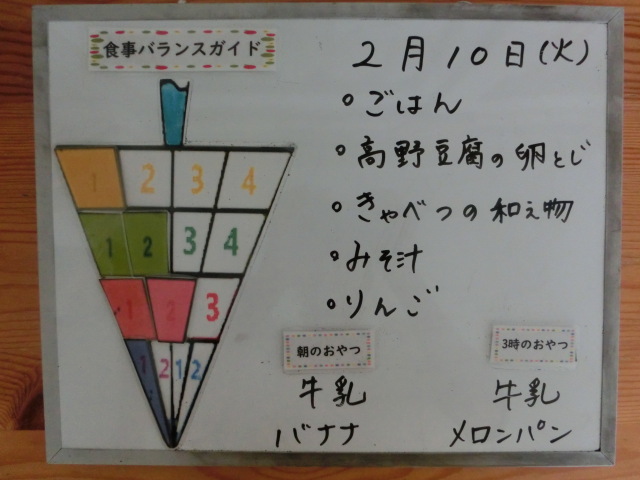 食事バランスガイド
2月10日(火)
・ごはん
・高野豆腐の卵とじ
・きゃべつの和え物
・みそ汁
・りんご
1 2 3 4
1 2 3 4
1 2 3
1 2 1 2
朝のおやつ
牛乳
バナナ
3時のおやつ
牛乳
メロンパン